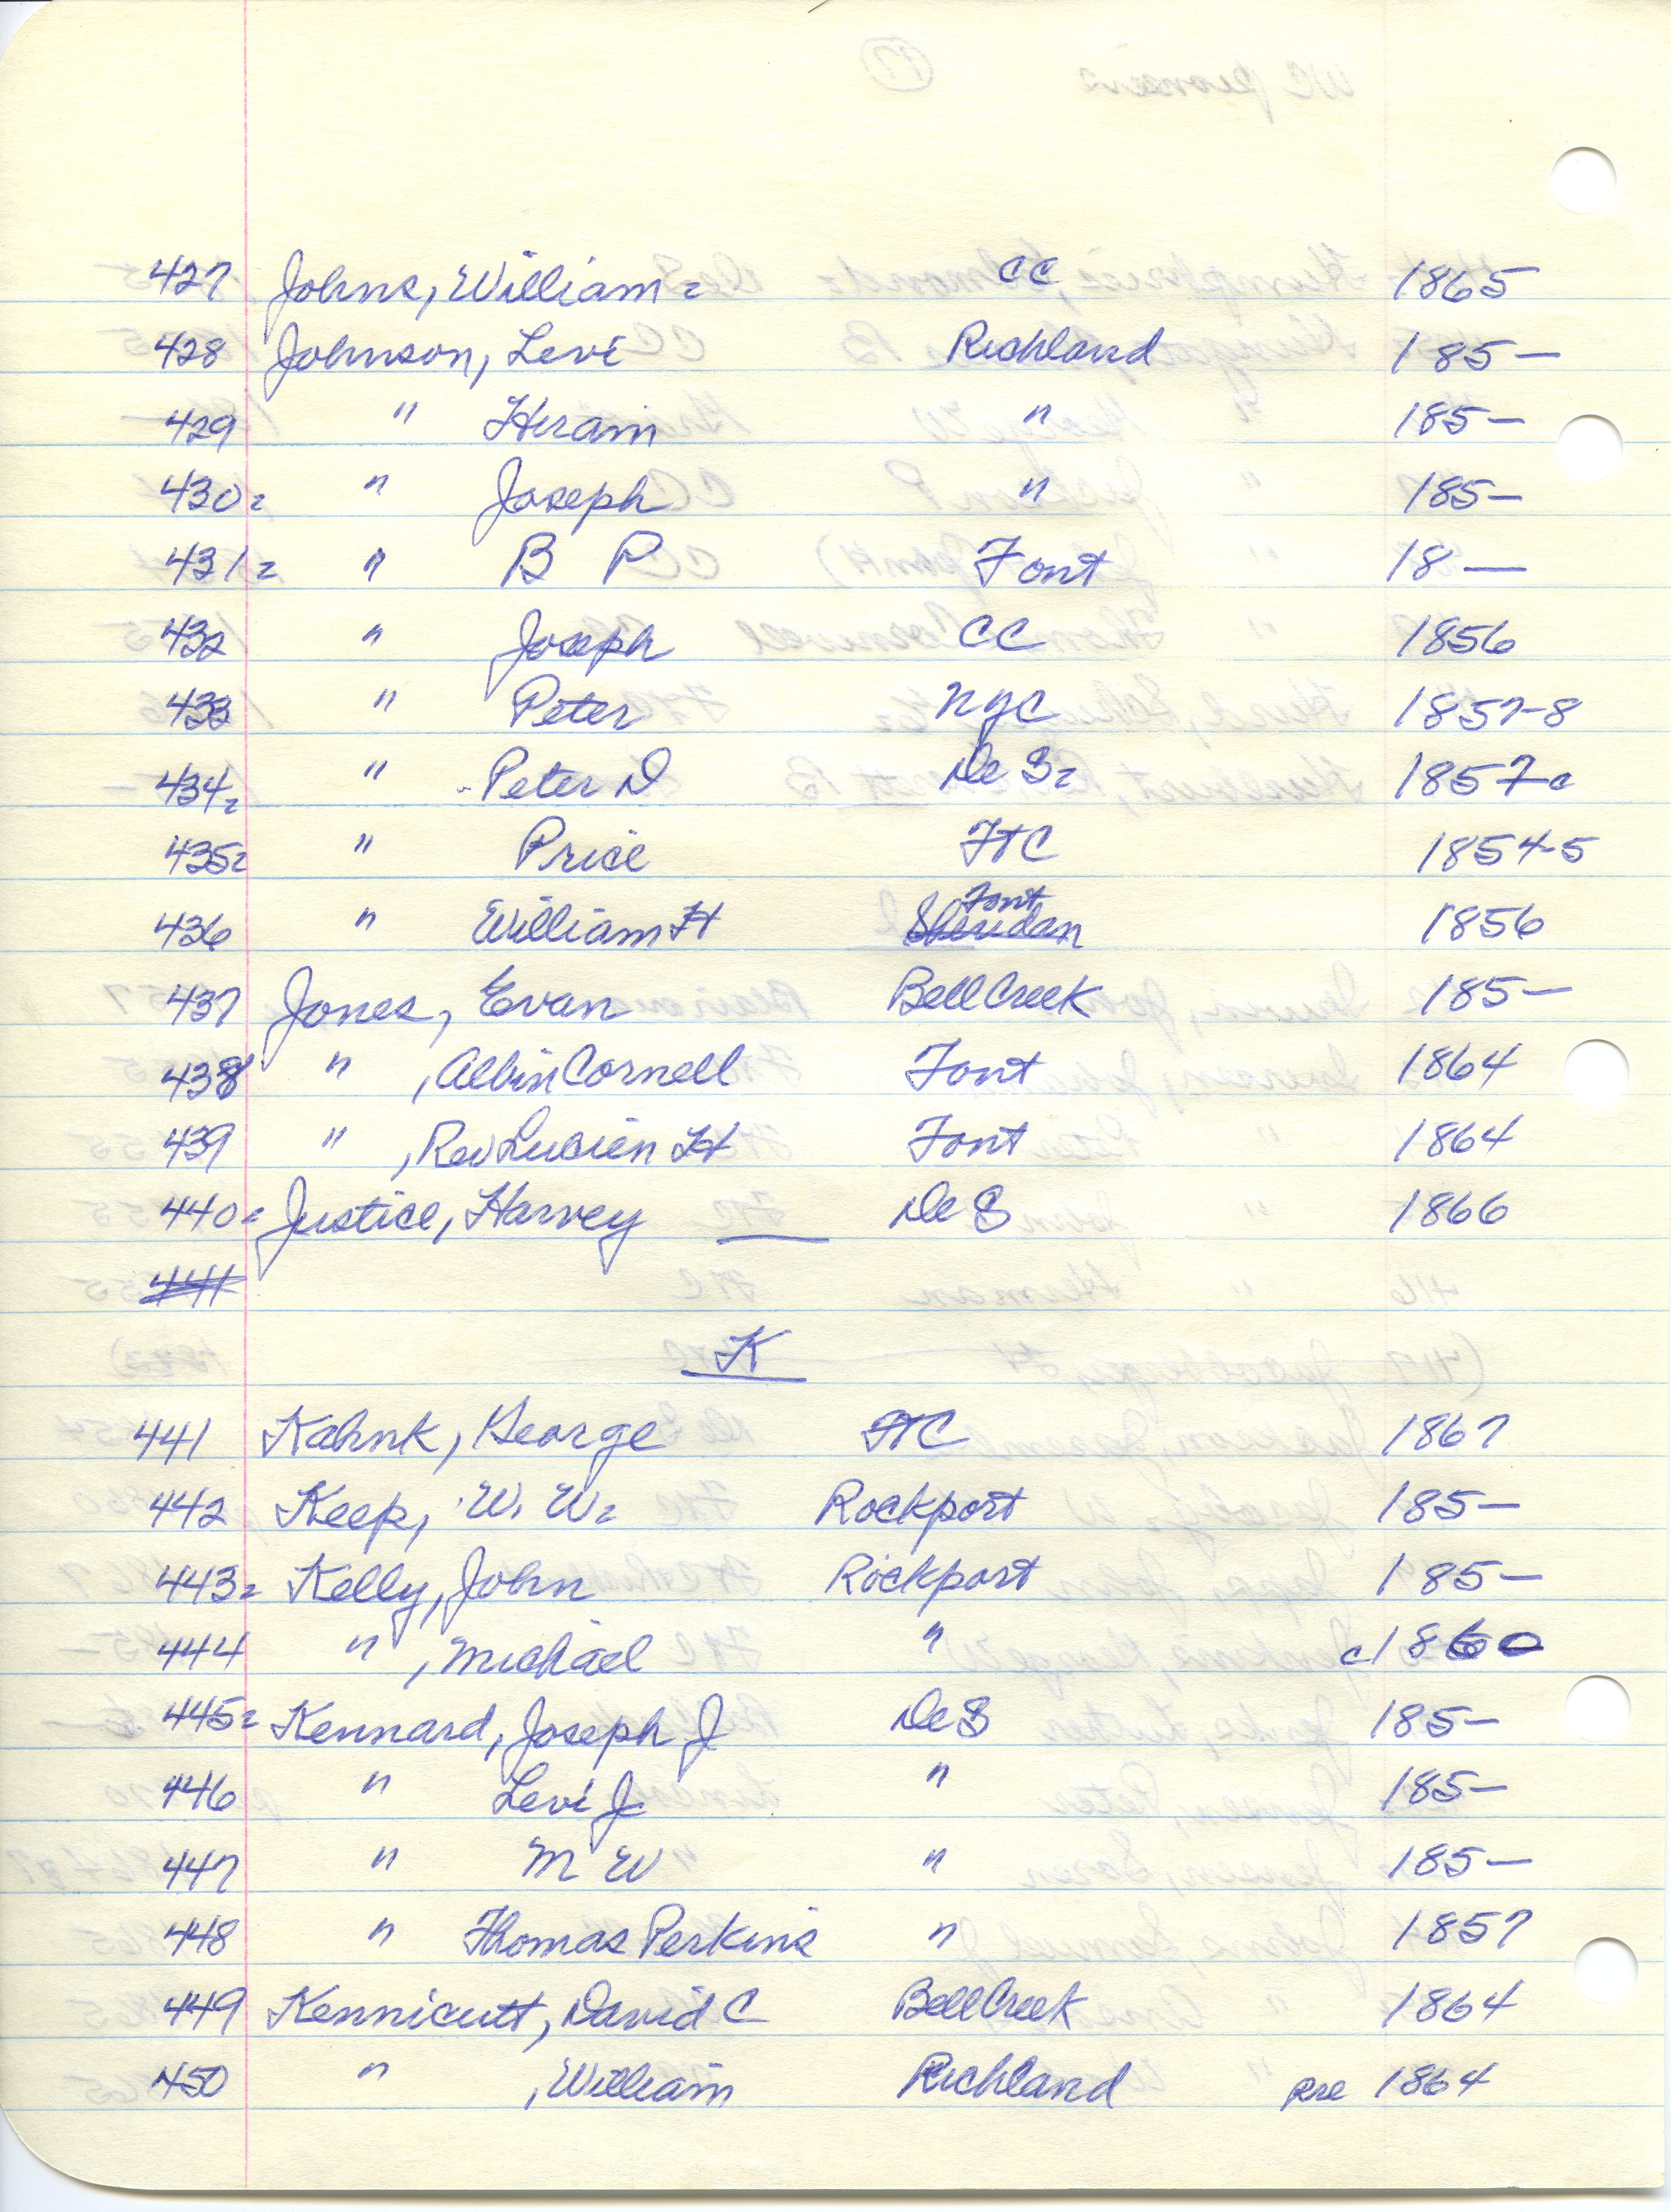 427 Johns, William CC 1865
428 Johnson, Levi Richland 185—
429 " Hiram " 185—
430 " Joseph " 185—
431 " B P Font 18 —
432 " Joseph CC 1856
433 " Peter NYC 1857-8
434 " Peter D De S 1857 c
435 " Price FTC 1854-5
Font
436 " William H Sheridan 1856
437 Jones, Evan Bell Creek 185—
438 " , Albin Cornell Font 1864
439 " , Rev Lucien H Font 1864
440 Justice, Harvey De S 1866
441
K
441 Kahnk, George FTC 1867
442 Keep, W. W. Rockport 185—
443 Kelly, John Rockport 185—
444 " , Michael " c 1860
445 Kennard, Joseph J De S 185—
446 " Levi J " 185—
447 " M W " 185—
448 " Thomas Perkins " 1857
449 Kennicutt, David C Bell Creek 1864
450 " , William Richland pre 1864